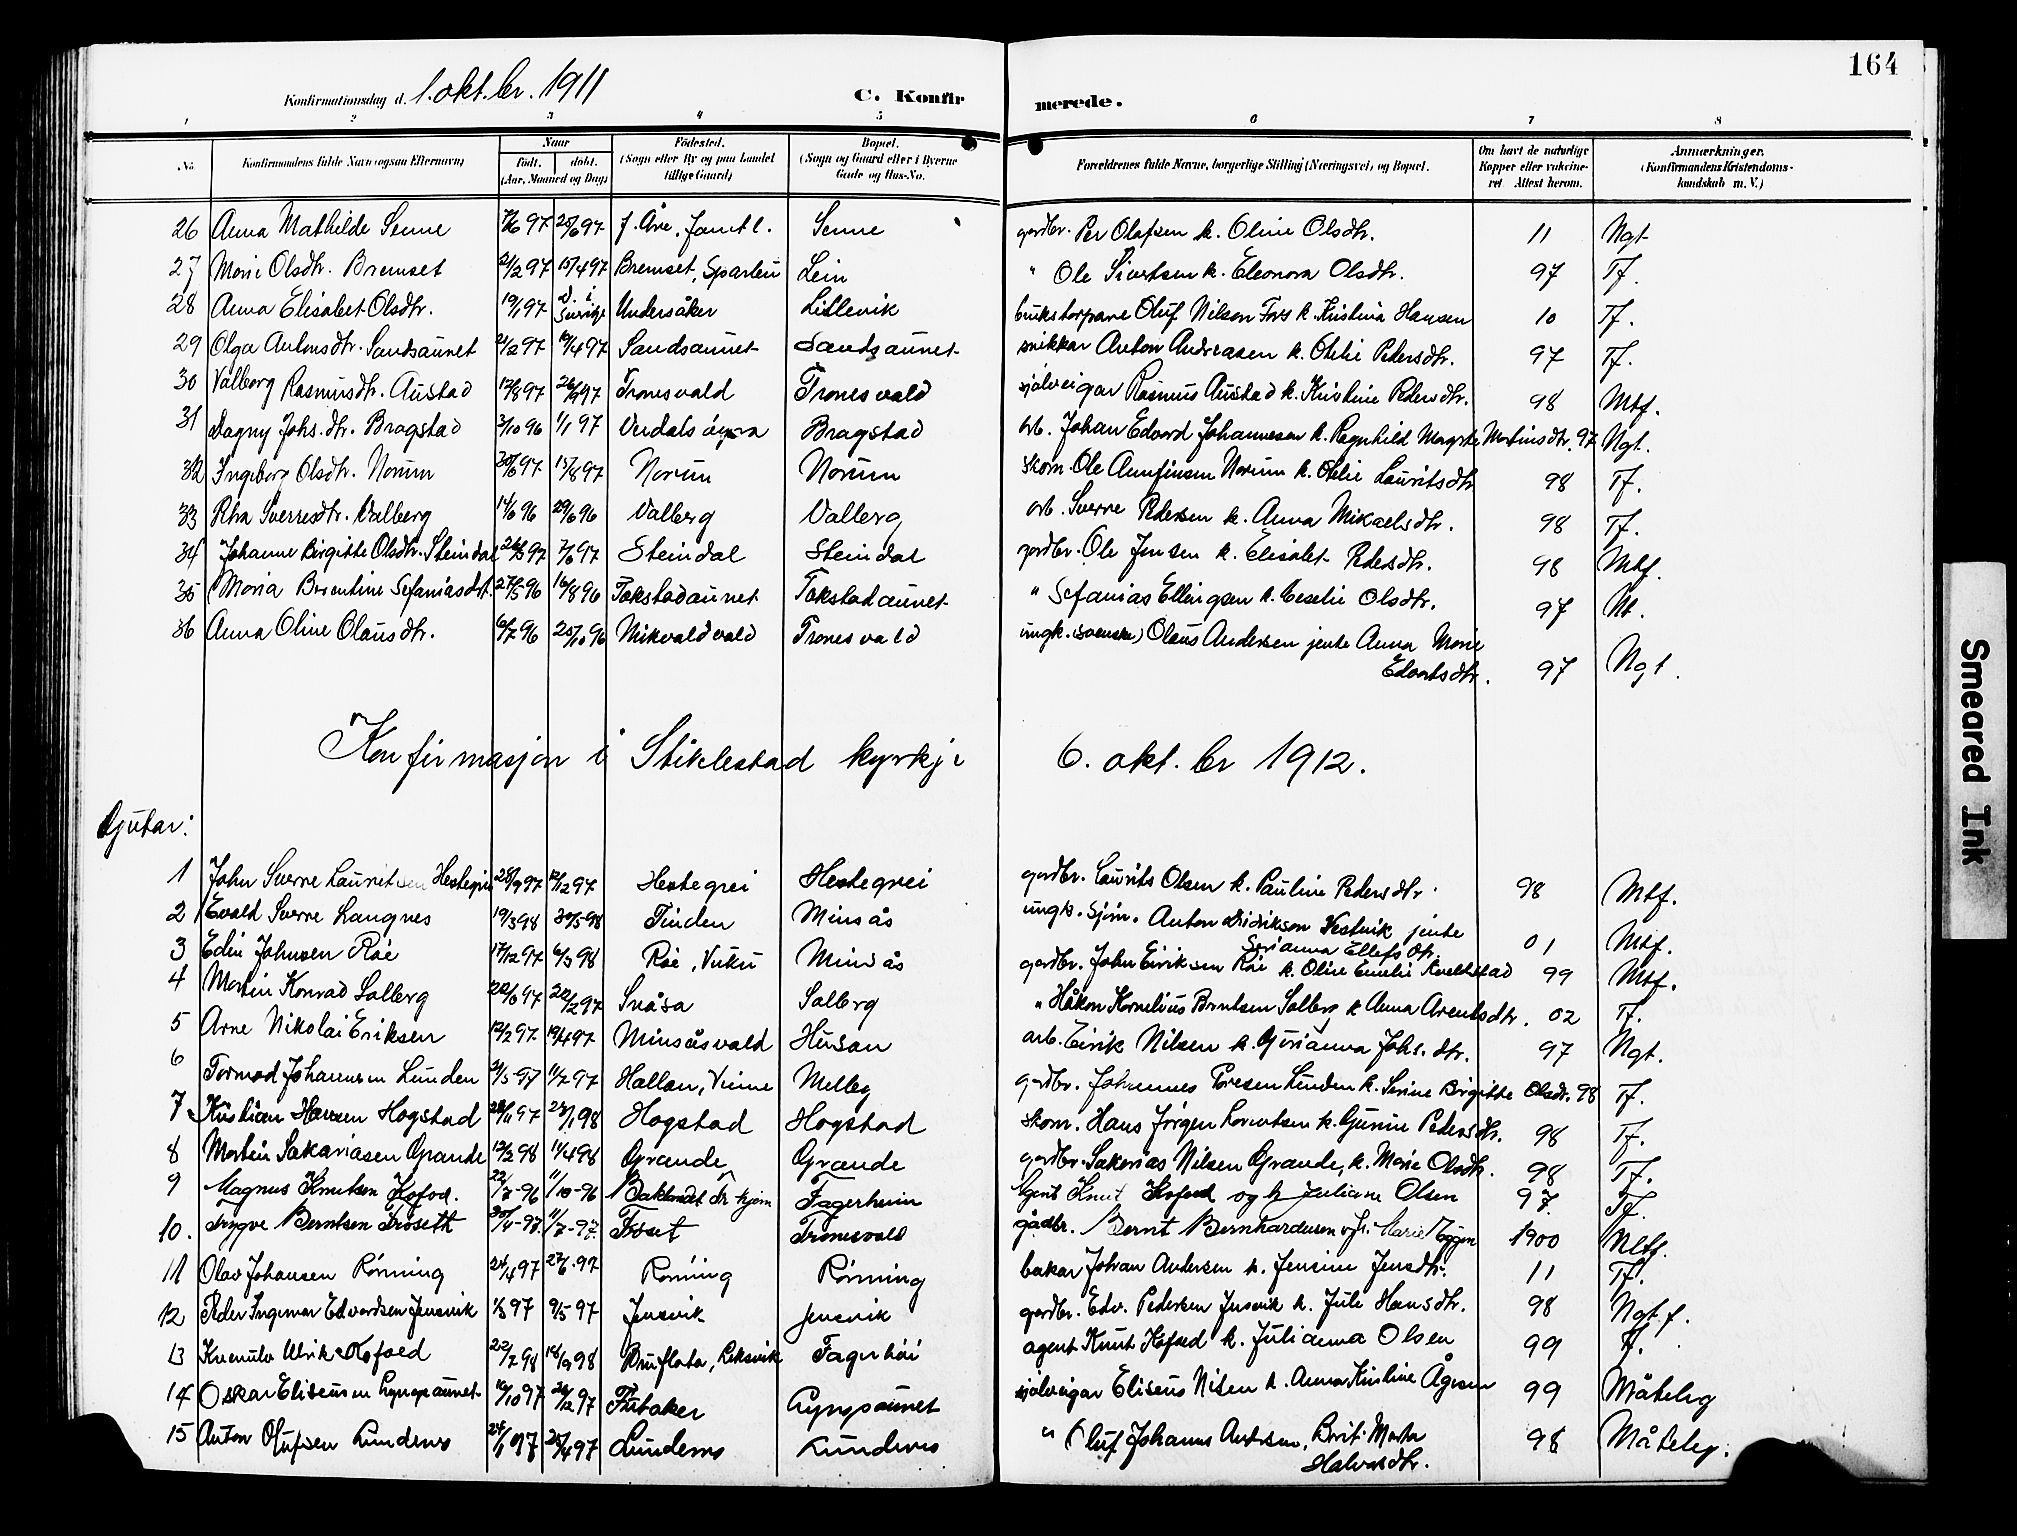 164
Konfirmationsdag d. 1. okt.br. 1911 C. Konfirmerede.
1 2 3 4 5 6 7 8
No. Konfirmandens fulde Navn (ogsaa Efternavn) Naar født. døbt. (Aar, Maaned og Dag) Fødested. (Sogn eller By og paa Landet tillige Gaard) Bopæl. (Sogn og Gaard eller i Byerne Gade og Hus-No. Forældrenes fulde Navne, borgerlige Stilling (Næringsvei) og Bopæl. Om havt de naturlige Kopper eller vakcineret Attest herom. Anmærkninger. (Konfirmandens Kristendomskundskab m. V.)
26 Anna Mathilde Senne 97 20/6 97 f. Åre, Jamtl. Senne gardbr. Per Olafsen k. Oline Olsdtr. 11 Ngt
27 Marie Olsdtr. Bremset 21/2 97 15/4 97 Bremset, Sparbu Lein " Ole Sivertsen k. Eleonora Olsdtr. 97 Tf.
28 Anna Elisabet Olsdtr. 19/1 97 d. i Sverige Undersåker Lillevik brukstorpare Oluf Nilson Fors k. Kristina Hansen 10 Tf.
29 Olga Antonsdtr. Sandsaunet 21/2 97 19/4 97 Sandsaunet Sandsaunet snikkar Anton Andreasen k. Otelie Pedersdtr. 97 Tf.
30 Valborg Rasmusdtr. Austad 12/8 97 26/9 97 Tronesvald Tronesvald sjølveigar Rasmus Austad k. Kristine Pedersdtr. 98 Mtf.
31 Dagny Johs.dtr. Bragstad 3/10 96 1/1 97 Verdalsøyra Bragstad arb. Johan Edvard Johannesen k. Ragnhild Magrete Martinsdtr. 97 Ngt.
32 Ingeborg Olsdtr. Norum 30/6 97 15/8 97 Norum Norum skom. Ole Arnfinsen Norum k. Otelie Lauritsdtr 98 Tf.
33 Rha Sverresdtr. Valberg 14/6 96 29/6 96 Valberg Valberg arb. Sverre Pedersen k. Anna Mikaelsdtr. 98 Tf.
34 Johanne Birgitte Olsdtr. Steindal 26/3 97 7/6 97 Steindal Steindal gardbr. Ole Jensen k. Elisabet Pedersdtr. 98 Mtf.
35 Maria Berntine Sefaniasdtr. 27/5 96 16/8 96 Tokstadaunet Tokstadaunet " Sefanias Ellingsen k. Cecelie Olsdtr. 97 M.
36 Anna Oline Olausdtr. 6/7 96 25/10 96 Mikvaldvald Tronesvald ungk. (svenske) Olaus Andersen jente Anna Marie
Edvartsdtr. 97 Ngt.
Konfirmasjon i Stiklestad kyrkje 6. okt.br 1912.
Gjutar:
1 John Sverre Lauritsen Hestegrei 28/9 97 12/12 97 Hestegrei Hestegrei gardbr. Laurits Olsen k. Pauline Pedersdtr. 98 Mtf.
2 Evald Sverre Langnes 19/3 98 30/5-98 Tinden Minsås ungk. sjøm. Anton Didrikson Vestvik jente
Serianna Ellefsdtr. 01 Mtf.
3 Edin Johnsen Røe 17/12 97 6/3 98 Røe, Vuku Minsås gardbr. John Eiriksen Røe k. Oline Emelie Kvelstad 99 Mtf.
4 Martin Konrad Solberg 22/2 97 Snåsa Solberg " Håkon Kornelius Berntsen Solberg k Anna Arentsdtr. 02 Tf.
5 Arne Nikolai Eriksen 12/2 97 19/4 97 Minsåsvald Husan arb. Eirik Nilsen k. Gurianna Johs.dtr. 97 Ngt.
6 Tormod Johannesen Lunden 31/5 97 11/7 97 Hallan, Vinne Melby gardbr. Johannes Toresen Lunden k. Serine Birgitte Olsdr. 98 Tf.
7 Kristian Hansen Hogstad 28/11 97 23/1 98 Hogstad Hogstad skom. Hans Jørgen Lorentsen k. Gurine Pedersdtr. 98 Tf.
8 Martin Sakariasen Grande 12/2 98 11/4 98 Grande Grande gardbr. Sakarias Nilsen Grande, k. Marie Olsdtr. 98 Tf.
9 Magnus Knutsen Kofod. 22/7-96 11/10-96 Baklandet Tr hjem Fagerheim Agent Knut Kofoed og h Juliane Olsen 97. Tf.
10. Trygve Berntsen Trøseth 30/4-97 11/7-97 Trøset Tronesvald gådbr. Bernt Bernhardusen o fr. Marie Eggen 1900 Mtf.
11 Olav Johansen Rønning 24/4 97 27/6.97 Rønning Rønning bakar Johan Andersen k. Jensine Jensdtr. 11 Tf.
12 Peder Ingemar Edvardsen Jensvik 1/3 97 9/5-97 Jensvik Jensvik gardbr. Edv. Pedersen Jensvik k. Jule Hansdtr. 98 Ngt f.
13 Kvenulv Ulrik Kofoed 23/7 98 18/9 98 Bruflota, Leksvik Fagerhøi agent Knut Kofoed k. Julianna Olsen 99 Tf.
14 Oskar Eliseusen Lyngsaunet 19/10 97 26/12 97 Flotaker Lyngsaunet sjølveigar Eliseus Nilsen k. Anna Kristine Ågesen 99 Måteleg
15 Anton Olufsen Lundenes 24/1 97 25/4 97 Lundenes Lundenes " Oluf Johannes Andersen, Berit Marta
Halvarsdtr. 98 Måteleg.
Smeared Ink